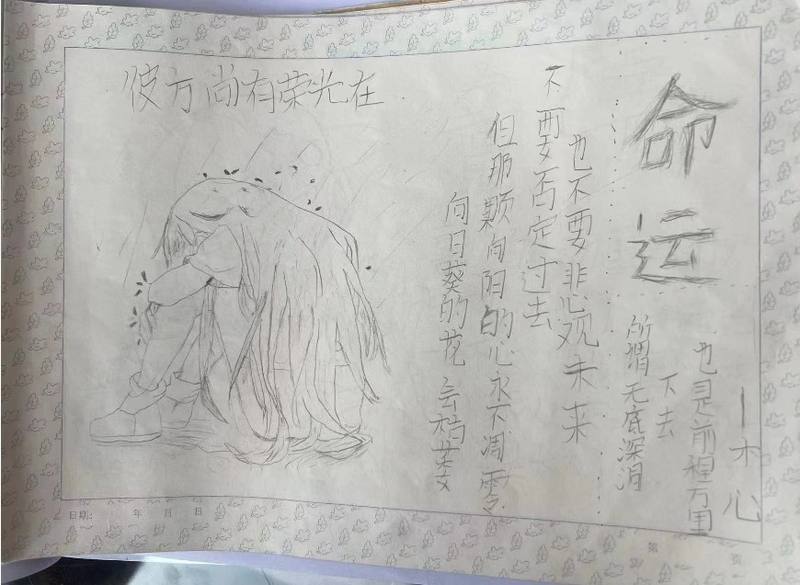 彼方尚有荣光在
命运
所谓无底深渊
下去
也是前程万里
—木心
不要否定过去
也不要悲观未来
向日葵的花会枯萎
但那颗向阳的心永不凋零
日期: 年 月 日
第 页